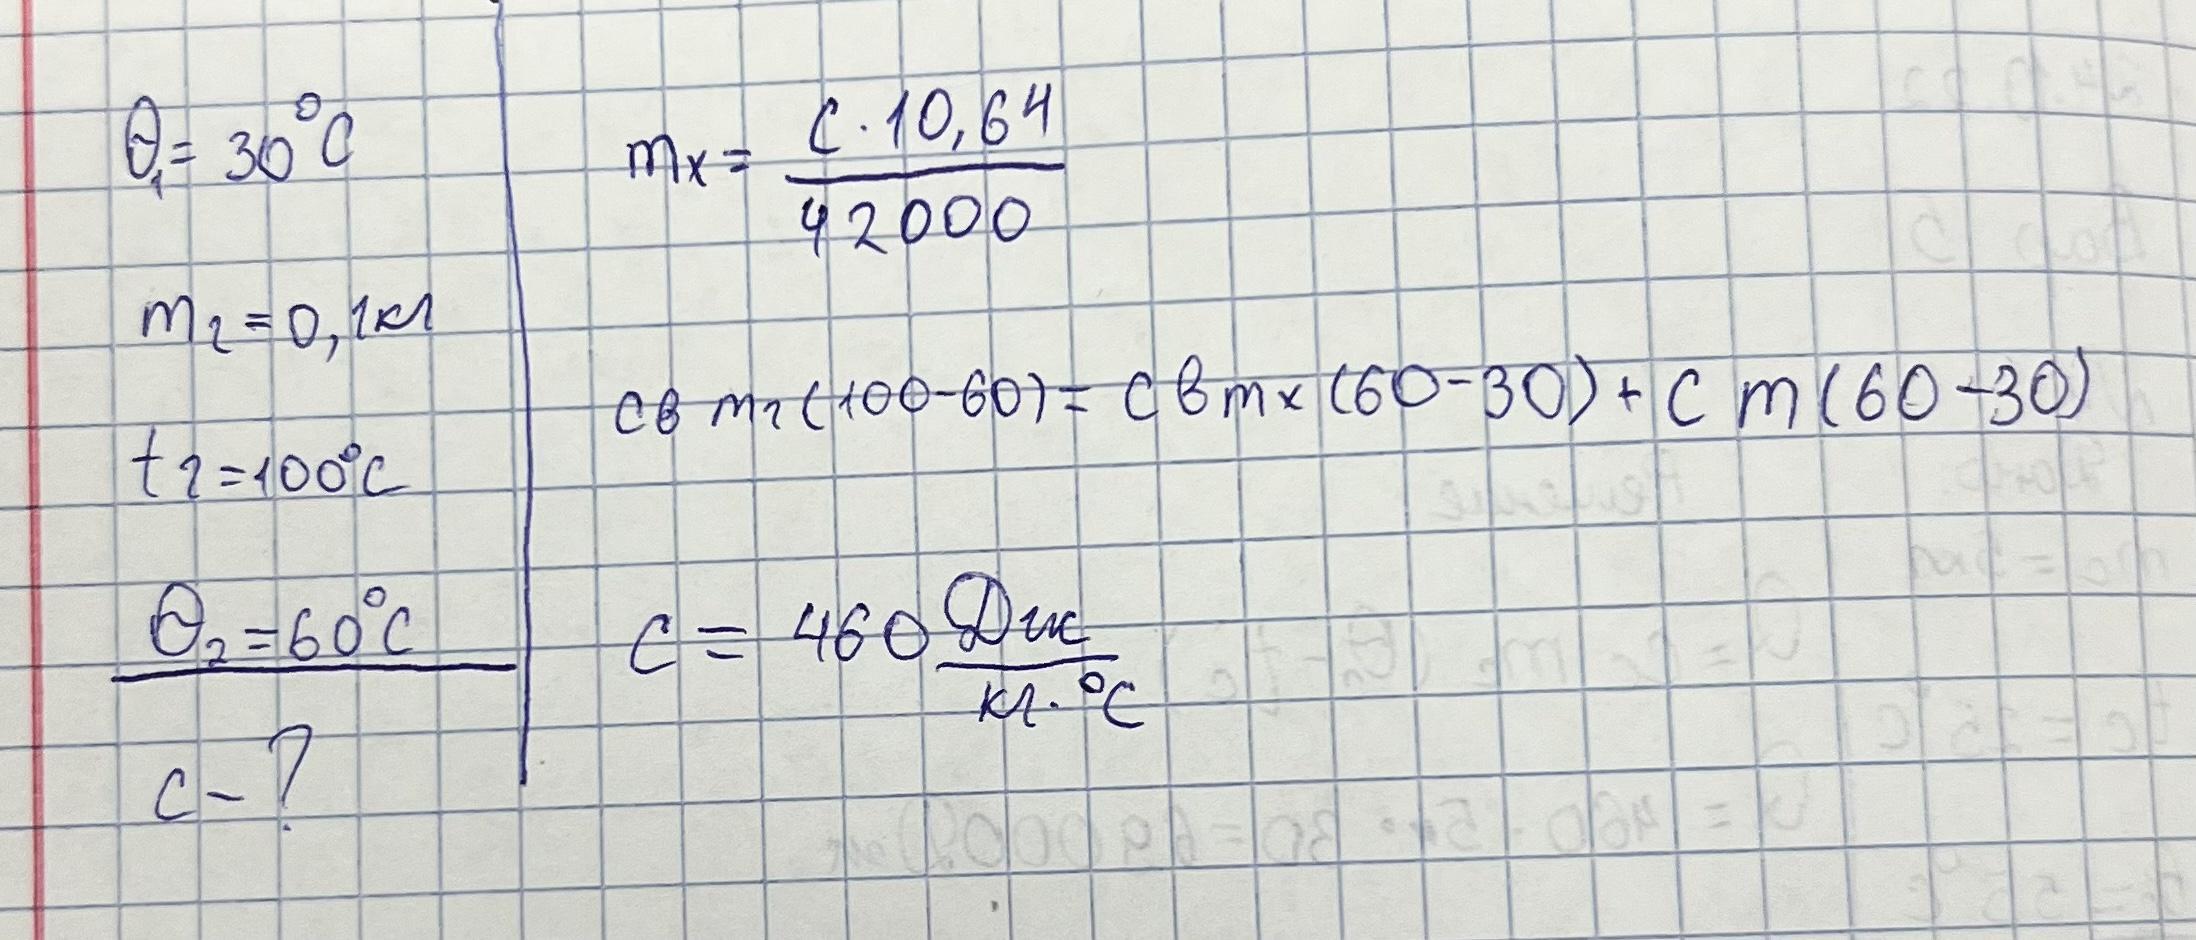 θ₁ = 30°C
m₂ = 0,1 кг
t₂ = 100°C
θ₂ = 60°C
c - ?
mx = c · 10,64 / 42000
cв m₂ (100-60) = cв mx (60-30) + c m (60-30)
c = 460 Дж / кг · °C